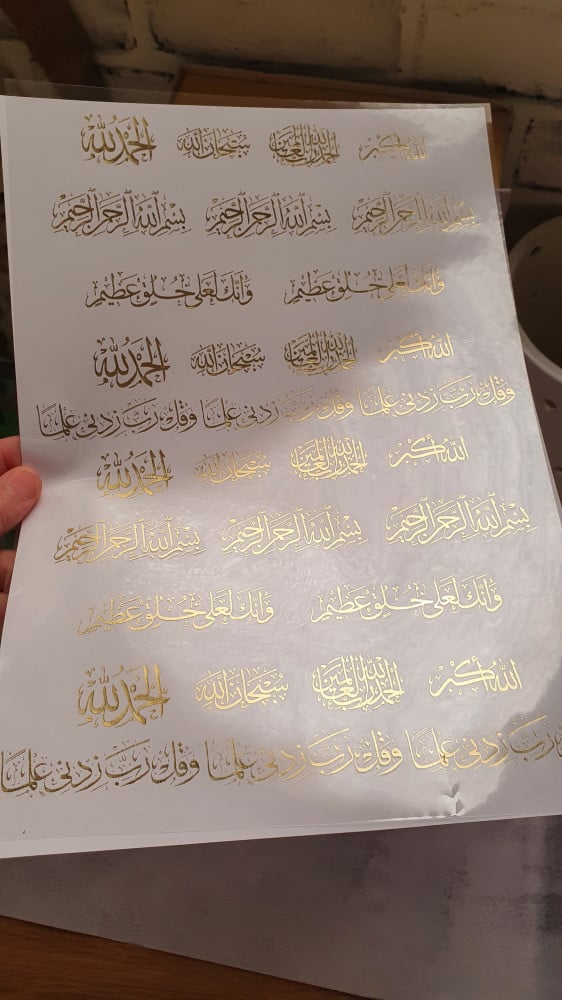 الله أكبر الحمد لله رب العالمين سبحان الله الحمد لله
بسم الله الرحمن الرحيم بسم الله الرحمن الرحيم بسم الله الرحمن الرحيم
وَإِنَّكَ لَعَلى خُلُقٍ عَظِيمٍ وَإِنَّكَ لَعَلى خُلُقٍ عَظِيمٍ
الله أكبر الحمد لله رب العالمين سبحان الله الحمد لله
وَقُل رَبِّ زِدْنِي عِلْمًا وَقُل رَبِّ زِدْنِي عِلْمًا وَقُل رَبِّ زِدْنِي عِلْمًا
الله أكبر الحمد لله رب العالمين سبحان الله الحمد لله
بسم الله الرحمن الرحيم بسم الله الرحمن الرحيم بسم الله الرحمن الرحيم
وَإِنَّكَ لَعَلى خُلُقٍ عَظِيمٍ وَإِنَّكَ لَعَلى خُلُقٍ عَظِيمٍ
الله أكبر الحمد لله رب العالمين سبحان الله الحمد لله
رَبِّ زِدْنِي عِلْمًا وَقُل رَبِّ زِدْنِي عِلْمًا وَقُل رَبِّ زِدْنِي عِلْمًا